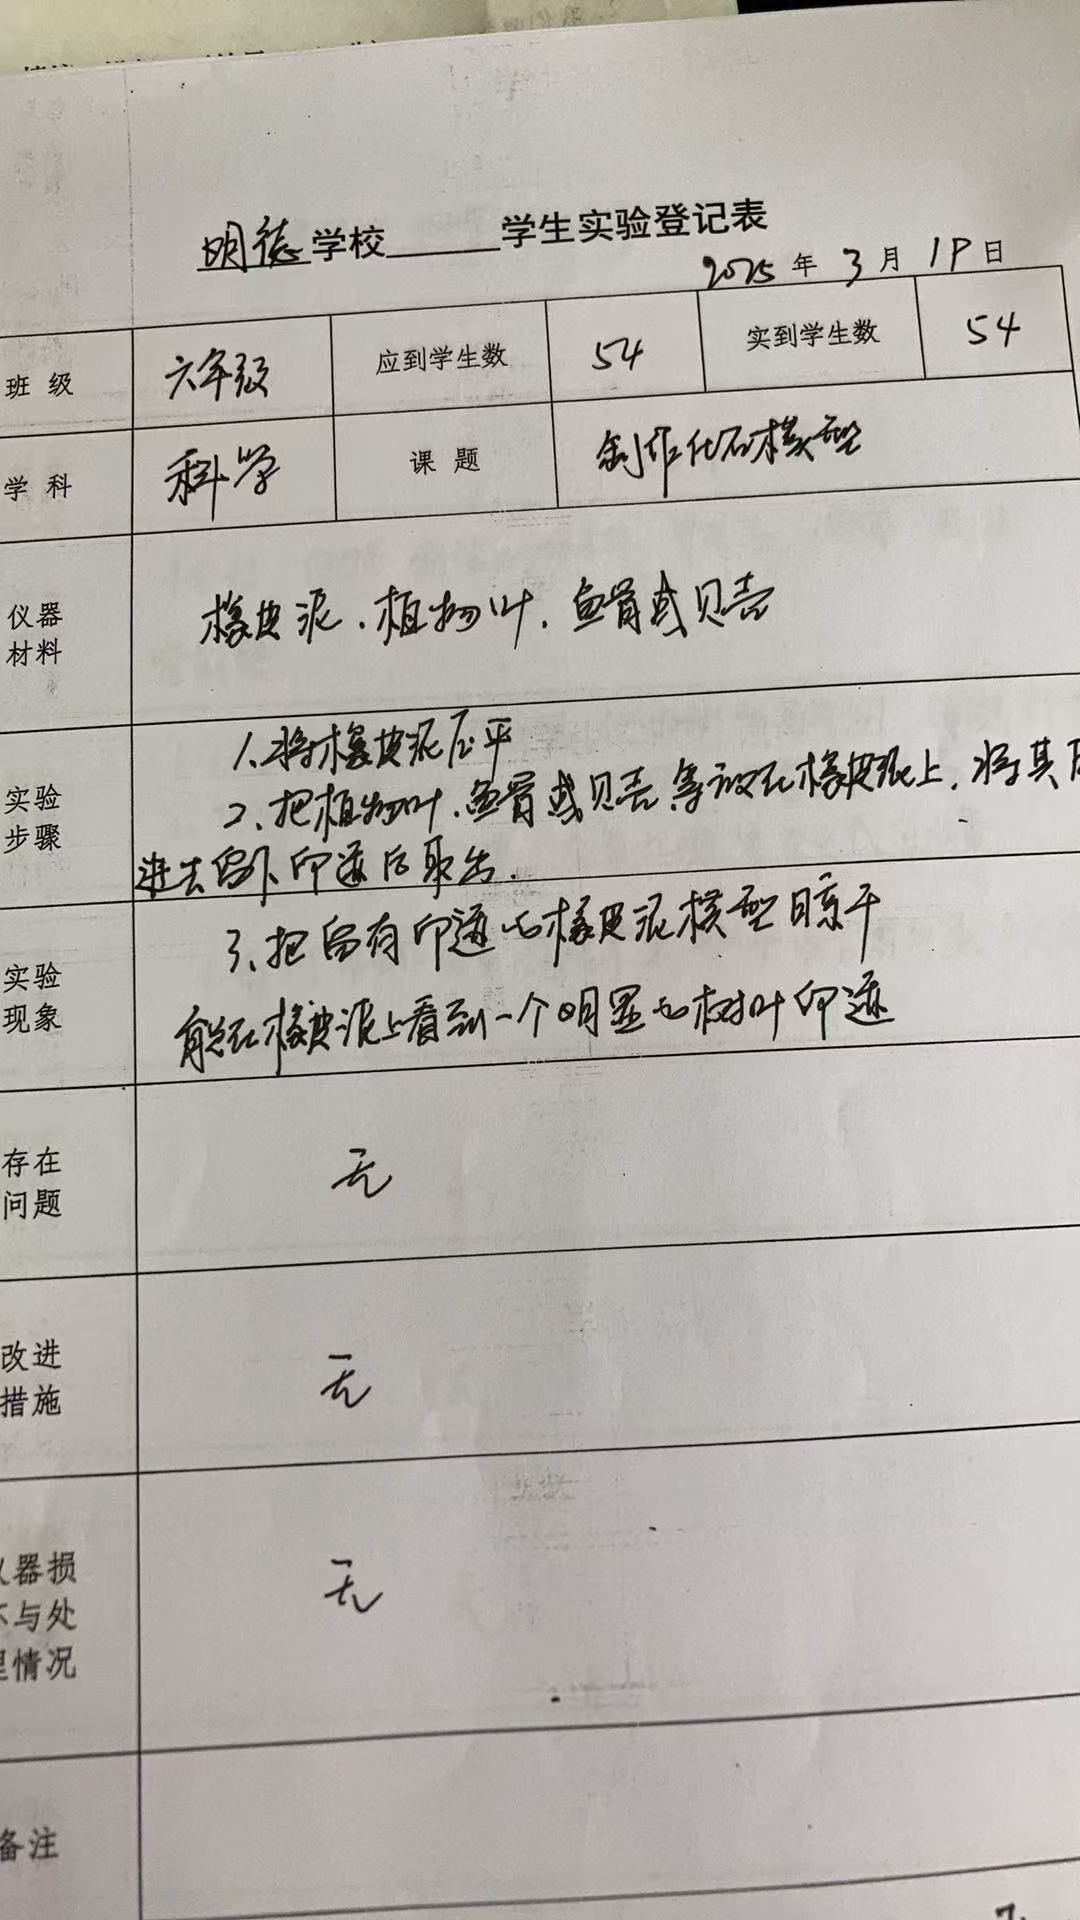 明德学校______学生实验登记表
2025年3月19日
班级 六年级 应到学生数 54 实到学生数 54
学科 科学 课题 制作化石模型
仪器
材料
橡皮泥、植物叶、鱼骨或贝壳
实验
步骤
1、将橡皮泥压平
2、把植物叶、鱼骨或贝壳等放在橡皮泥上,将其压
进去留下印迹后取出.
实验
现象
3、把留有印迹的橡皮泥模型晾干
能在橡皮泥上看到一个明显的树叶印迹
存在
问题
无
改进
措施
无
仪器损
坏与处
理情况
无
备注